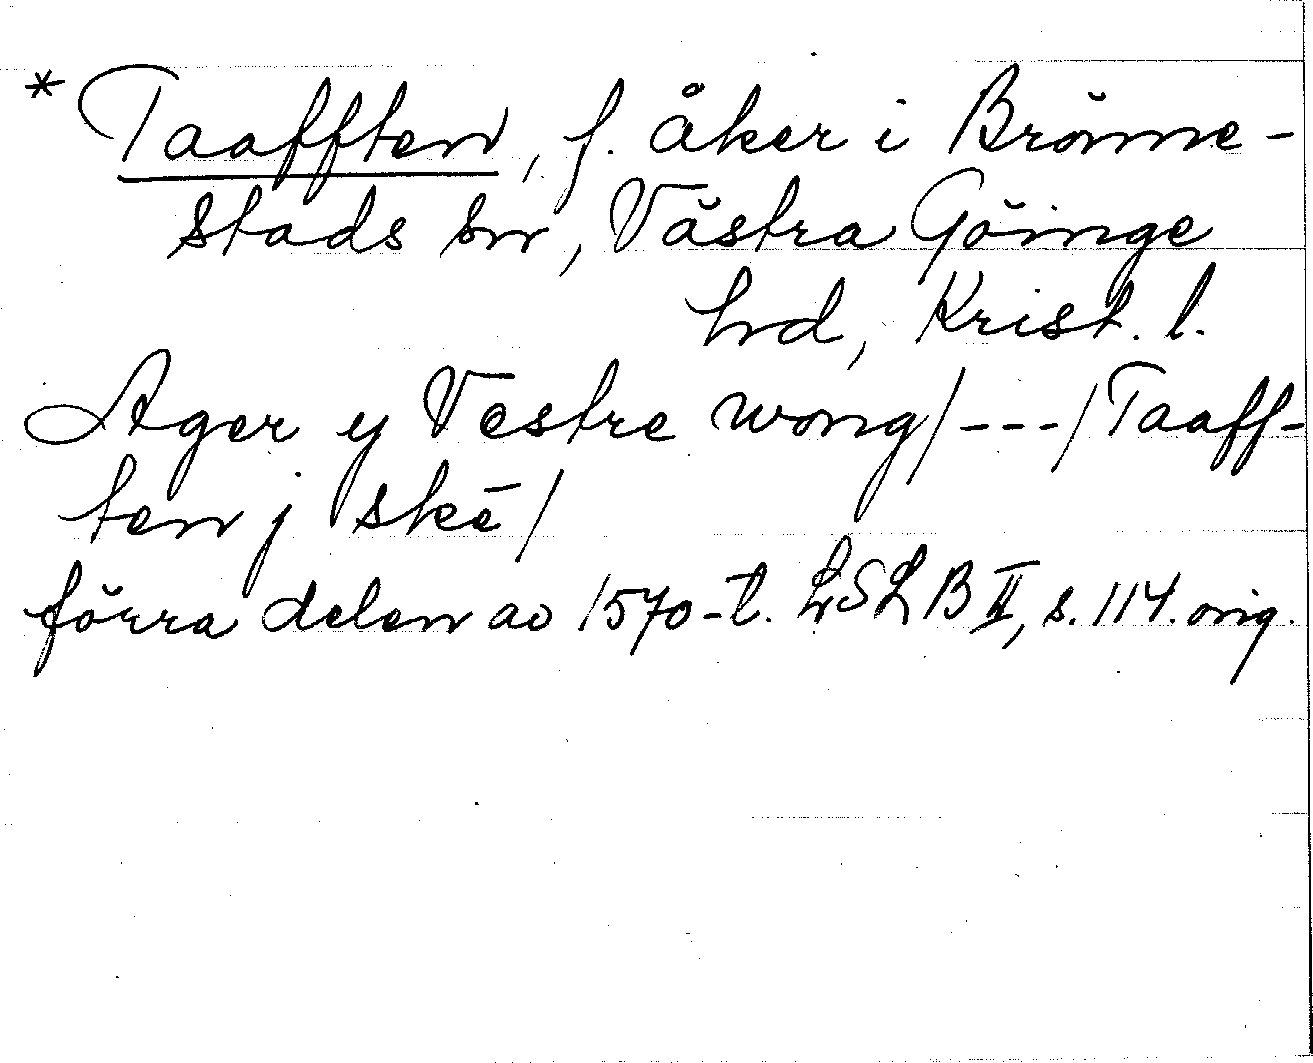 * Taafften, f. åker i Brönne-
stads sn, Västra Göinge
hd, Krist. l.
Ager y Vestre wong/---/Taaff-
ten j skē/
förra delen av 1570-t. LSLB II, s. 114. orig.